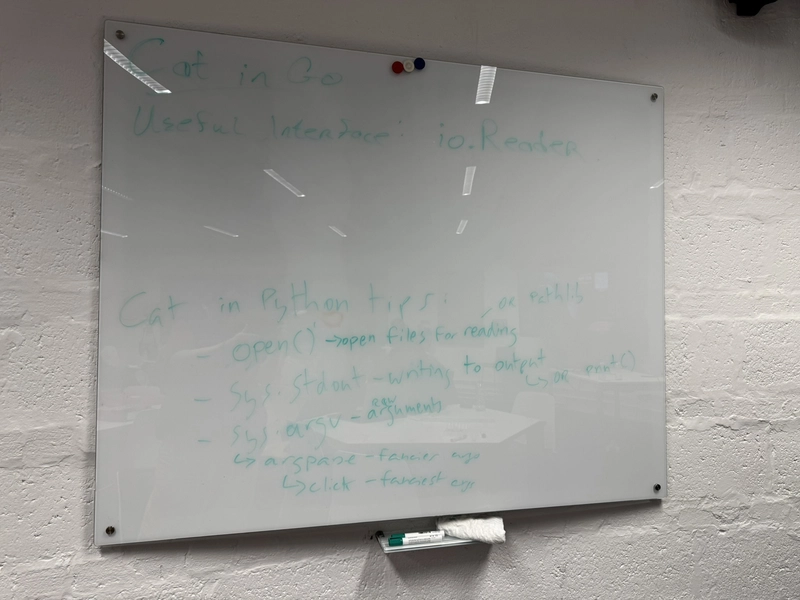 Cat in Go
Useful Interface: io.Reader
Cat in Python tips:
or pathlib
- open() → open files for reading
- sys.stdout - writing to output
↳ or print()
- sys.argv - raw arguments
↳ argparse - fancier args
↳ click - fanciest args